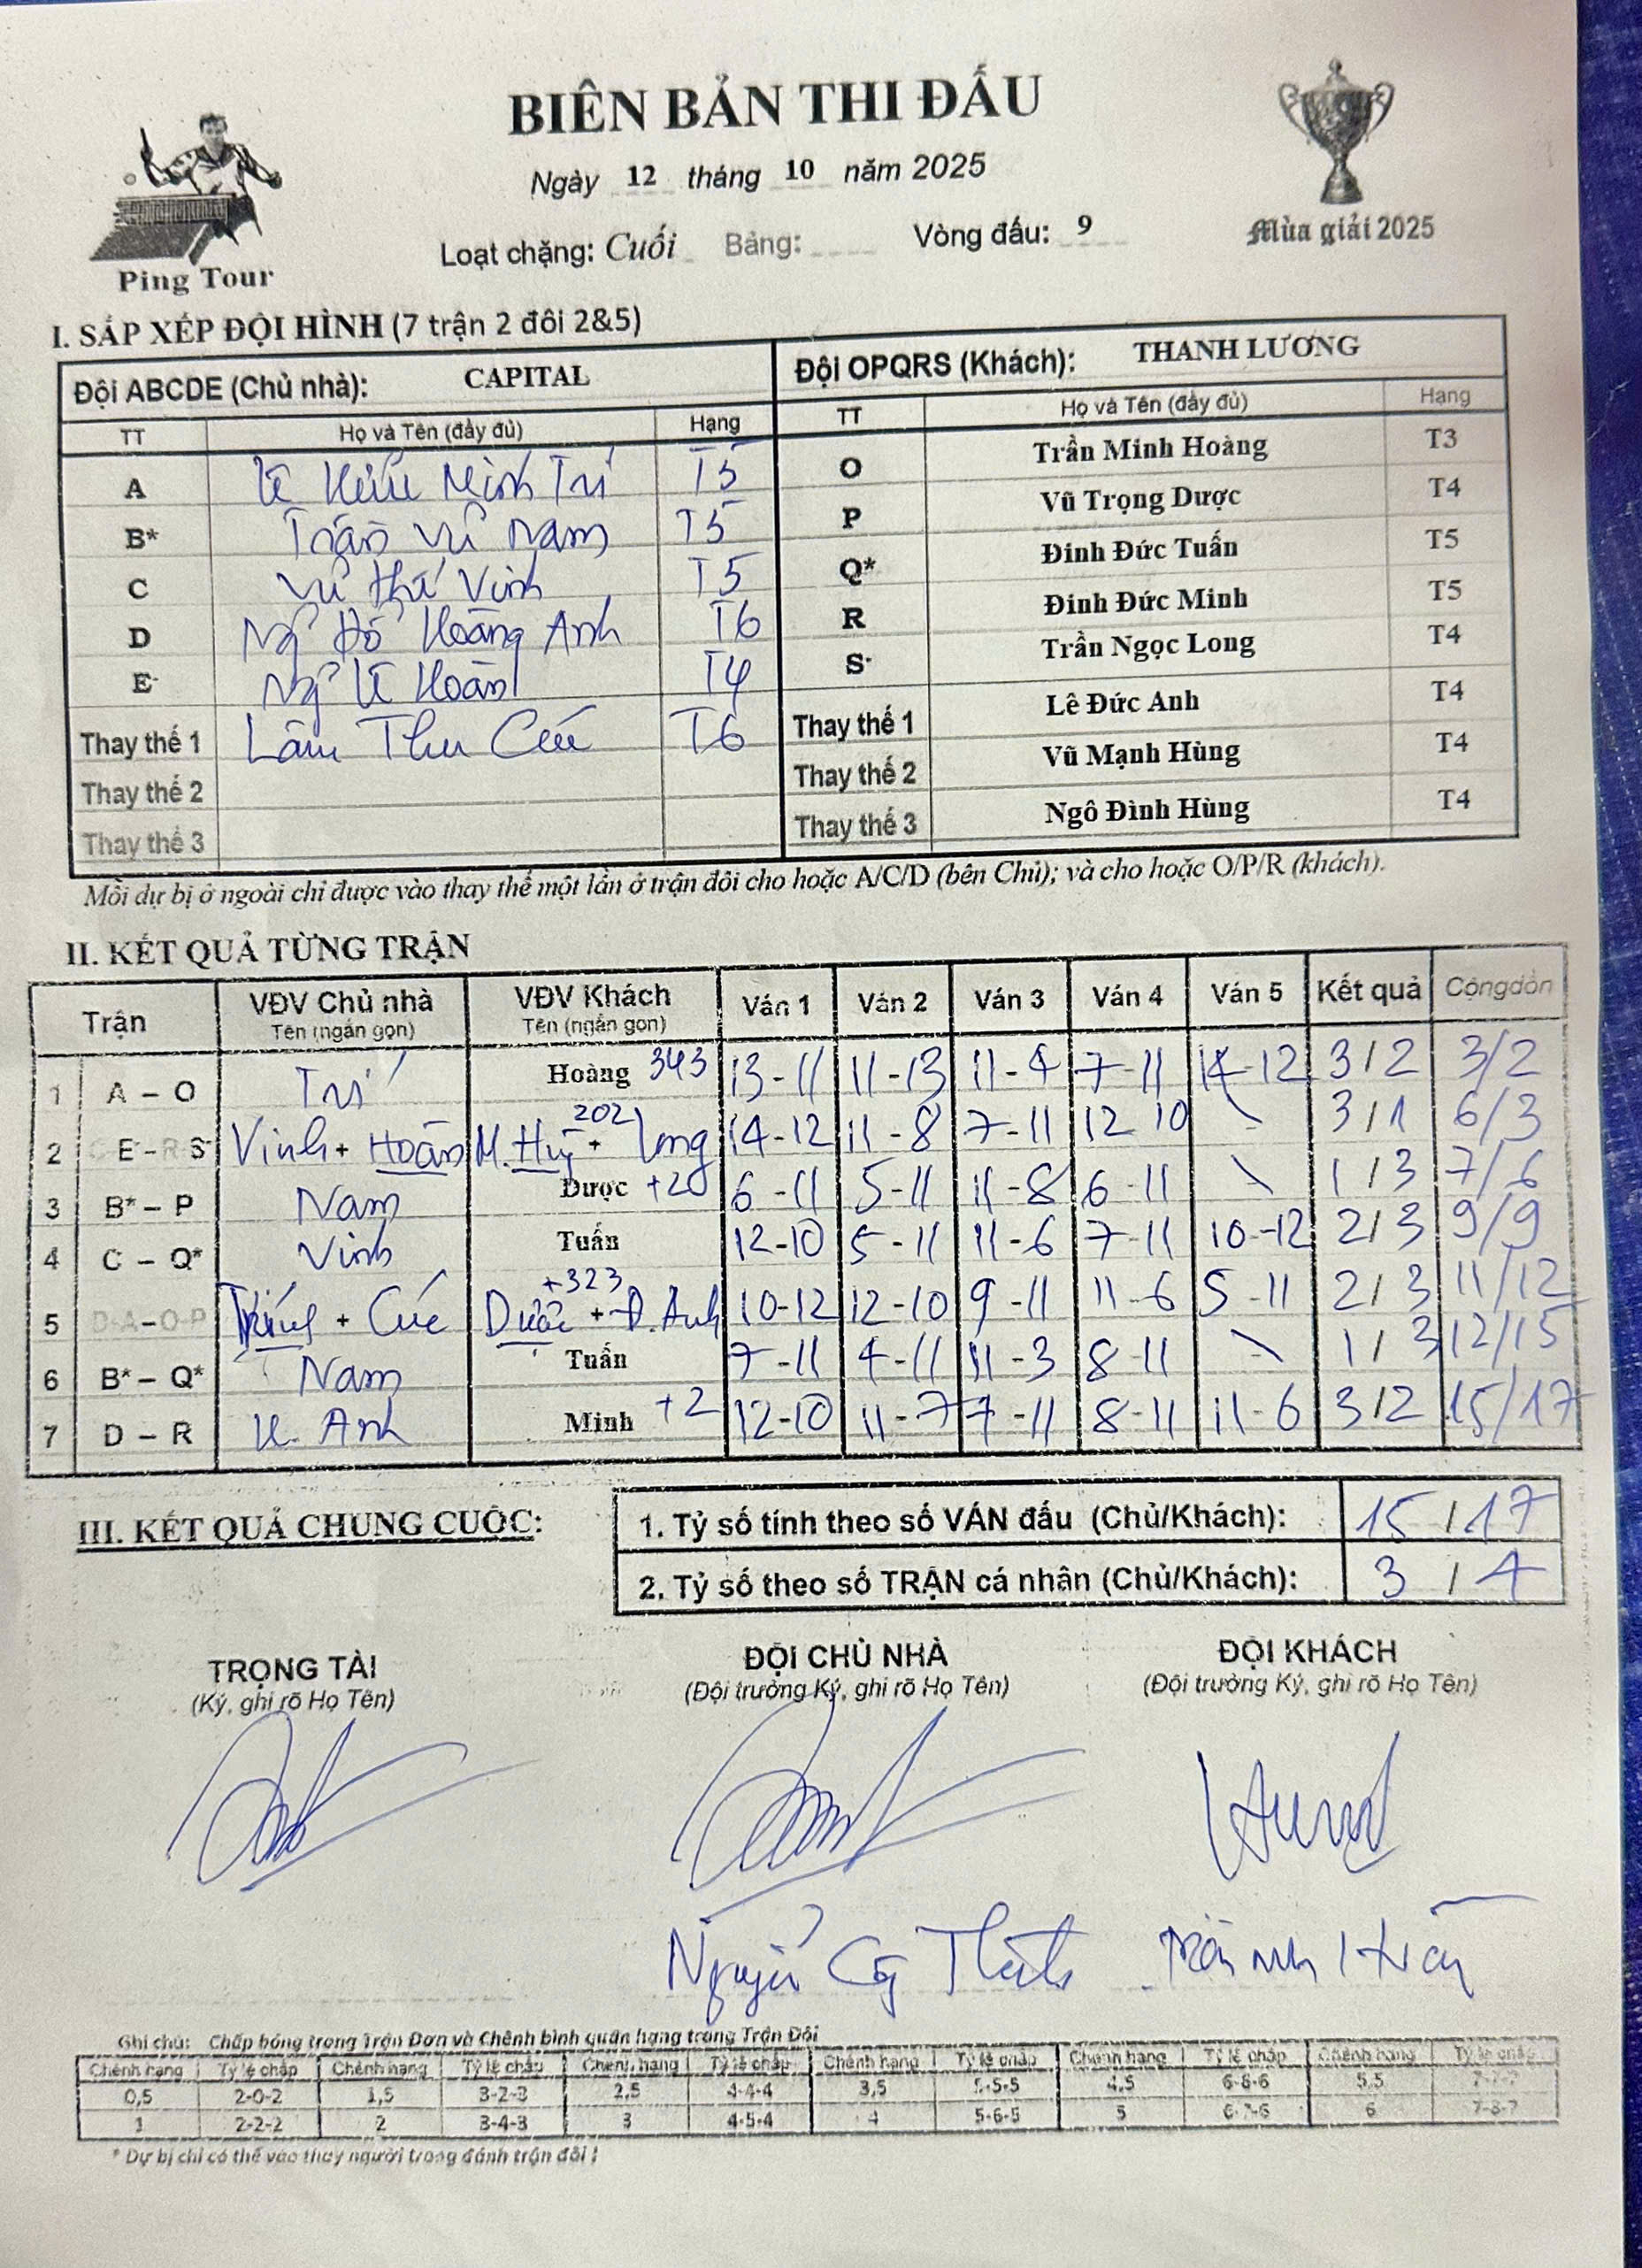 BIÊN BẢN THI ĐẤU
Ngày 12 tháng 10 năm 2025
Loạt chặng: Cuối Bảng: Vòng đấu: 9
Ping Tour
Mùa giải 2025
I. SẮP XẾP ĐỘI HÌNH (7 trận 2 đôi 2&5)
Đội ABCDE (Chủ nhà): CAPITAL Đội OPQRS (Khách): THANH LƯƠNG
TT Họ và Tên (đầy đủ) Hạng TT Họ và Tên (đầy đủ) Hạng
A Lê Hữu Minh Trí T5 O Trần Minh Hoàng T3
B* Trần Vũ Nam T5 P Vũ Trọng Dược T4
C Vũ Thế Vinh T5 Q* Đinh Đức Tuấn T5
D Ng Đỗ Hoàng Anh T6 R Đinh Đức Minh T5
E- Ng Lê Hoàn T4 S- Trần Ngọc Long T4
Thay thế 1 Lâm Thu Cúc T6 Thay thế 1 Lê Đức Anh T4
Thay thế 2 Thay thế 2 Vũ Mạnh Hùng T4
Thay thế 3 Thay thế 3 Ngô Đình Hùng T4
Mỗi dự bị ở ngoài chỉ được vào thay thế một lần ở trận đôi cho hoặc A/C/D (bên Chủ); và cho hoặc O/P/R (khách).
II. KẾT QUẢ TỪNG TRẬN
Trận VĐV Chủ nhà VĐV Khách Ván 1 Ván 2 Ván 3 Ván 4 Ván 5 Kết quả Cộngdồn
Tên (ngắn gọn) Tên (ngắn gọn)
1 A – O Trí Hoàng 343 13-11 11-13 11-4 7-11 14-12 3/2 3/2
2 E-R S- Vinh + Hoàn M. + Long 202 14-12 11-8 7-11 12 10 \ 3/1 6/3
3 B* – P Nam Dược +20 6-11 5-11 11-8 6-11 \ 1/3 7/6
4 C – Q* Vinh Tuấn 12-10 5-11 11-6 7-11 10-12 2/3 9/9
5 D-A–O-P + Cúc Dược + Đ.Anh +323 10-12 12-10 9-11 11-6 5-11 2/3 11/12
6 B* – Q* Nam Tuấn 7-11 4-11 11-3 8-11 \ 1/3 12/15
7 D – R H. Anh Minh +2 12-10 11-7 7-11 8-11 11-6 3/2 15/17
III. KẾT QUẢ CHUNG CUỘC:
1. Tỷ số tính theo số VÁN đấu (Chủ/Khách): 15/17
2. Tỷ số theo số TRẬN cá nhân (Chủ/Khách): 3/4
TRỌNG TÀI ĐỘI CHỦ NHÀ ĐỘI KHÁCH
(Ký, ghi rõ Họ Tên) (Đội trưởng Ký, ghi rõ Họ Tên) (Đội trưởng Ký, ghi rõ Họ Tên)
Ghi chú: Chấp bóng trong Trận Đơn và Chênh bình quân hạng trong Trận Đôi
Chênh hạng Tỷ lệ chấp Chênh hạng Tỷ lệ chấp Chênh hạng Tỷ lệ chấp Chênh hạng Tỷ lệ chấp Chênh hạng Tỷ lệ chấp Chênh hạng Tỷ lệ chấp
0,5 2-0-2 1,5 3-2-3 2,5 4-4-4 3,5 5-5-5 4,5 6-6-6 5,5 7-7-7
1 2-2-2 2 3-4-3 3 4-5-4 4 5-6-5 5 6-7-6 6 7-8-7
* Dự bị chỉ có thể vào thay người trong đánh trận đôi !